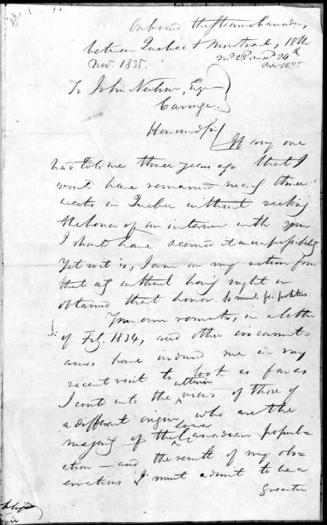 On board the Steamer Canada,
between Quebec & Montreal, 18th
Nov. 1835.
To John Neilson, Esqr
Honoured Sir/
If any one
had told me three years ago that I
would have remained nearly three
weeks in Quebec without seeking
the honor of an interview with you
I should have deemed it an improbability
Yet so it is, I am on my return from
that city without having sought or
obtained that honor. So much for politics.
Your own remarks, in a letter
of Feby. 1834, and other circumst-
ances have induced me in my
recent visit to look as far as
I could into the views of those of
a different origin, who are the
majority of the Lower Canadian popul-
ation — and the result of my obs-
ervations I must admit to be a
greater